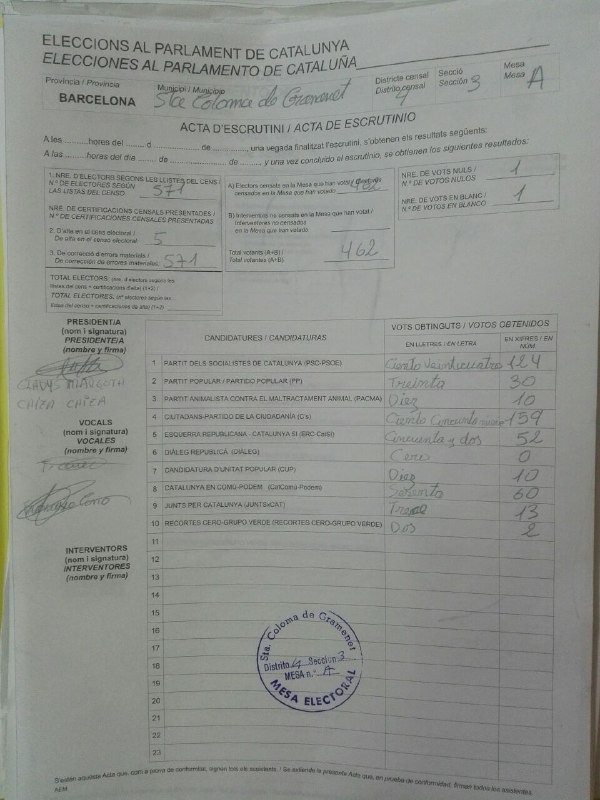 ELECCIONS AL PARLAMENT DE CATALUNYA
ELECCIONES AL PARLAMENTO DE CATALUÑA
Província / Provincia
BARCELONA
Municipi / Municipio
Sta Coloma de Gramenet
Districte censal
Distrito censal
4
Secció
Sección
3
Mesa
Mesa
A
ACTA D'ESCRUTINI / ACTA DE ESCRUTINIO
A les ......... hores del ....... d ............... de ..............., una vegada finalitzat l'escrutini, s'obtenen els resultats següents:
A las ......... horas del día ....... de ............... de ........, y una vez concluido el escrutinio, se obtienen los siguientes resultados:
1. NRE. D'ELECTORS SEGONS LES LLISTES DEL CENS /
N.º DE ELECTORES SEGÚN
LAS LISTAS DEL CENSO
571
NRE. DE CERTIFICACIONS CENSALS PRESENTADES /
N.º DE CERTIFICACIONES CENSALES PRESENTADAS
2. D'alta en el cens electoral /
De alta en el censo electoral
5
3. De correcció d'errors materials /
De corrección de errores materiales
571
TOTAL ELECTORS: (nre. d'electors segons les
llistes del cens + certificacions d'alta) (1+2) /
TOTAL ELECTORES: (nº electores según las
listas del censo + certificaciones de alta) (1+2)
A) Electors censats en la Mesa que han votat / Electores
censados en la Mesa que han votado
462
B) Interventors no censats en la Mesa que han votat /
Interventores no censados
en la Mesa que han votado
Total votants (A+B) /
Total votantes (A+B)
462
NRE. DE VOTS NULS /
N.º DE VOTOS NULOS
1
NRE. DE VOTS EN BLANC /
N.º DE VOTOS EN BLANCO
1
PRESIDENT/A
(nom i signatura)
PRESIDENTE/A
(nombre y firma)
GLADYS MARGOTH
CHIZA CHIZA
VOCALS
(nom i signatura)
VOCALES
(nombre y firma)
INTERVENTORS
(nom i signatura)
INTERVENTORES
(nombre y firma)
CANDIDATURES / CANDIDATURAS
VOTS OBTINGUTS / VOTOS OBTENIDOS
EN LLETRES / EN LETRA
EN XIFRES / EN NÚM.
1 PARTIT DELS SOCIALISTES DE CATALUNYA (PSC-PSOE) Ciento Veinticuatro 124
2 PARTIT POPULAR / PARTIDO POPULAR (PP) Treinta 30
3 PARTIT ANIMALISTA CONTRA EL MALTRACTAMENT ANIMAL (PACMA) Diez 10
4 CIUTADANS-PARTIDO DE LA CIUDADANÍA (C's) Ciento Cincuenta nueve 159
5 ESQUERRA REPUBLICANA - CATALUNYA SÍ (ERC-CatSí) Cincuenta y dos 52
6 DIÀLEG REPUBLICÀ (DIÀLEG) Cero 0
7 CANDIDATURA D'UNITAT POPULAR (CUP) Diez 10
8 CATALUNYA EN COMÚ-PODEM (CatComú-Podem) Sesenta 60
9 JUNTS PER CATALUNYA (JUNTSxCAT) Trece 13
10 RECORTES CERO-GRUPO VERDE (RECORTES CERO-GRUPO VERDE) Dos 2
11
12
13
14
15
16
17
18
19
20
21
22
23
Sta. Coloma de Gramenet
Distrito 4 Sección 3
MESA n.º A
MESA ELECTORAL
S'estén aquesta Acta que, com a prova de conformitat, signen tots els assistents. / Se extiende la presente Acta que, en prueba de conformidad, firman todos los asistentes.